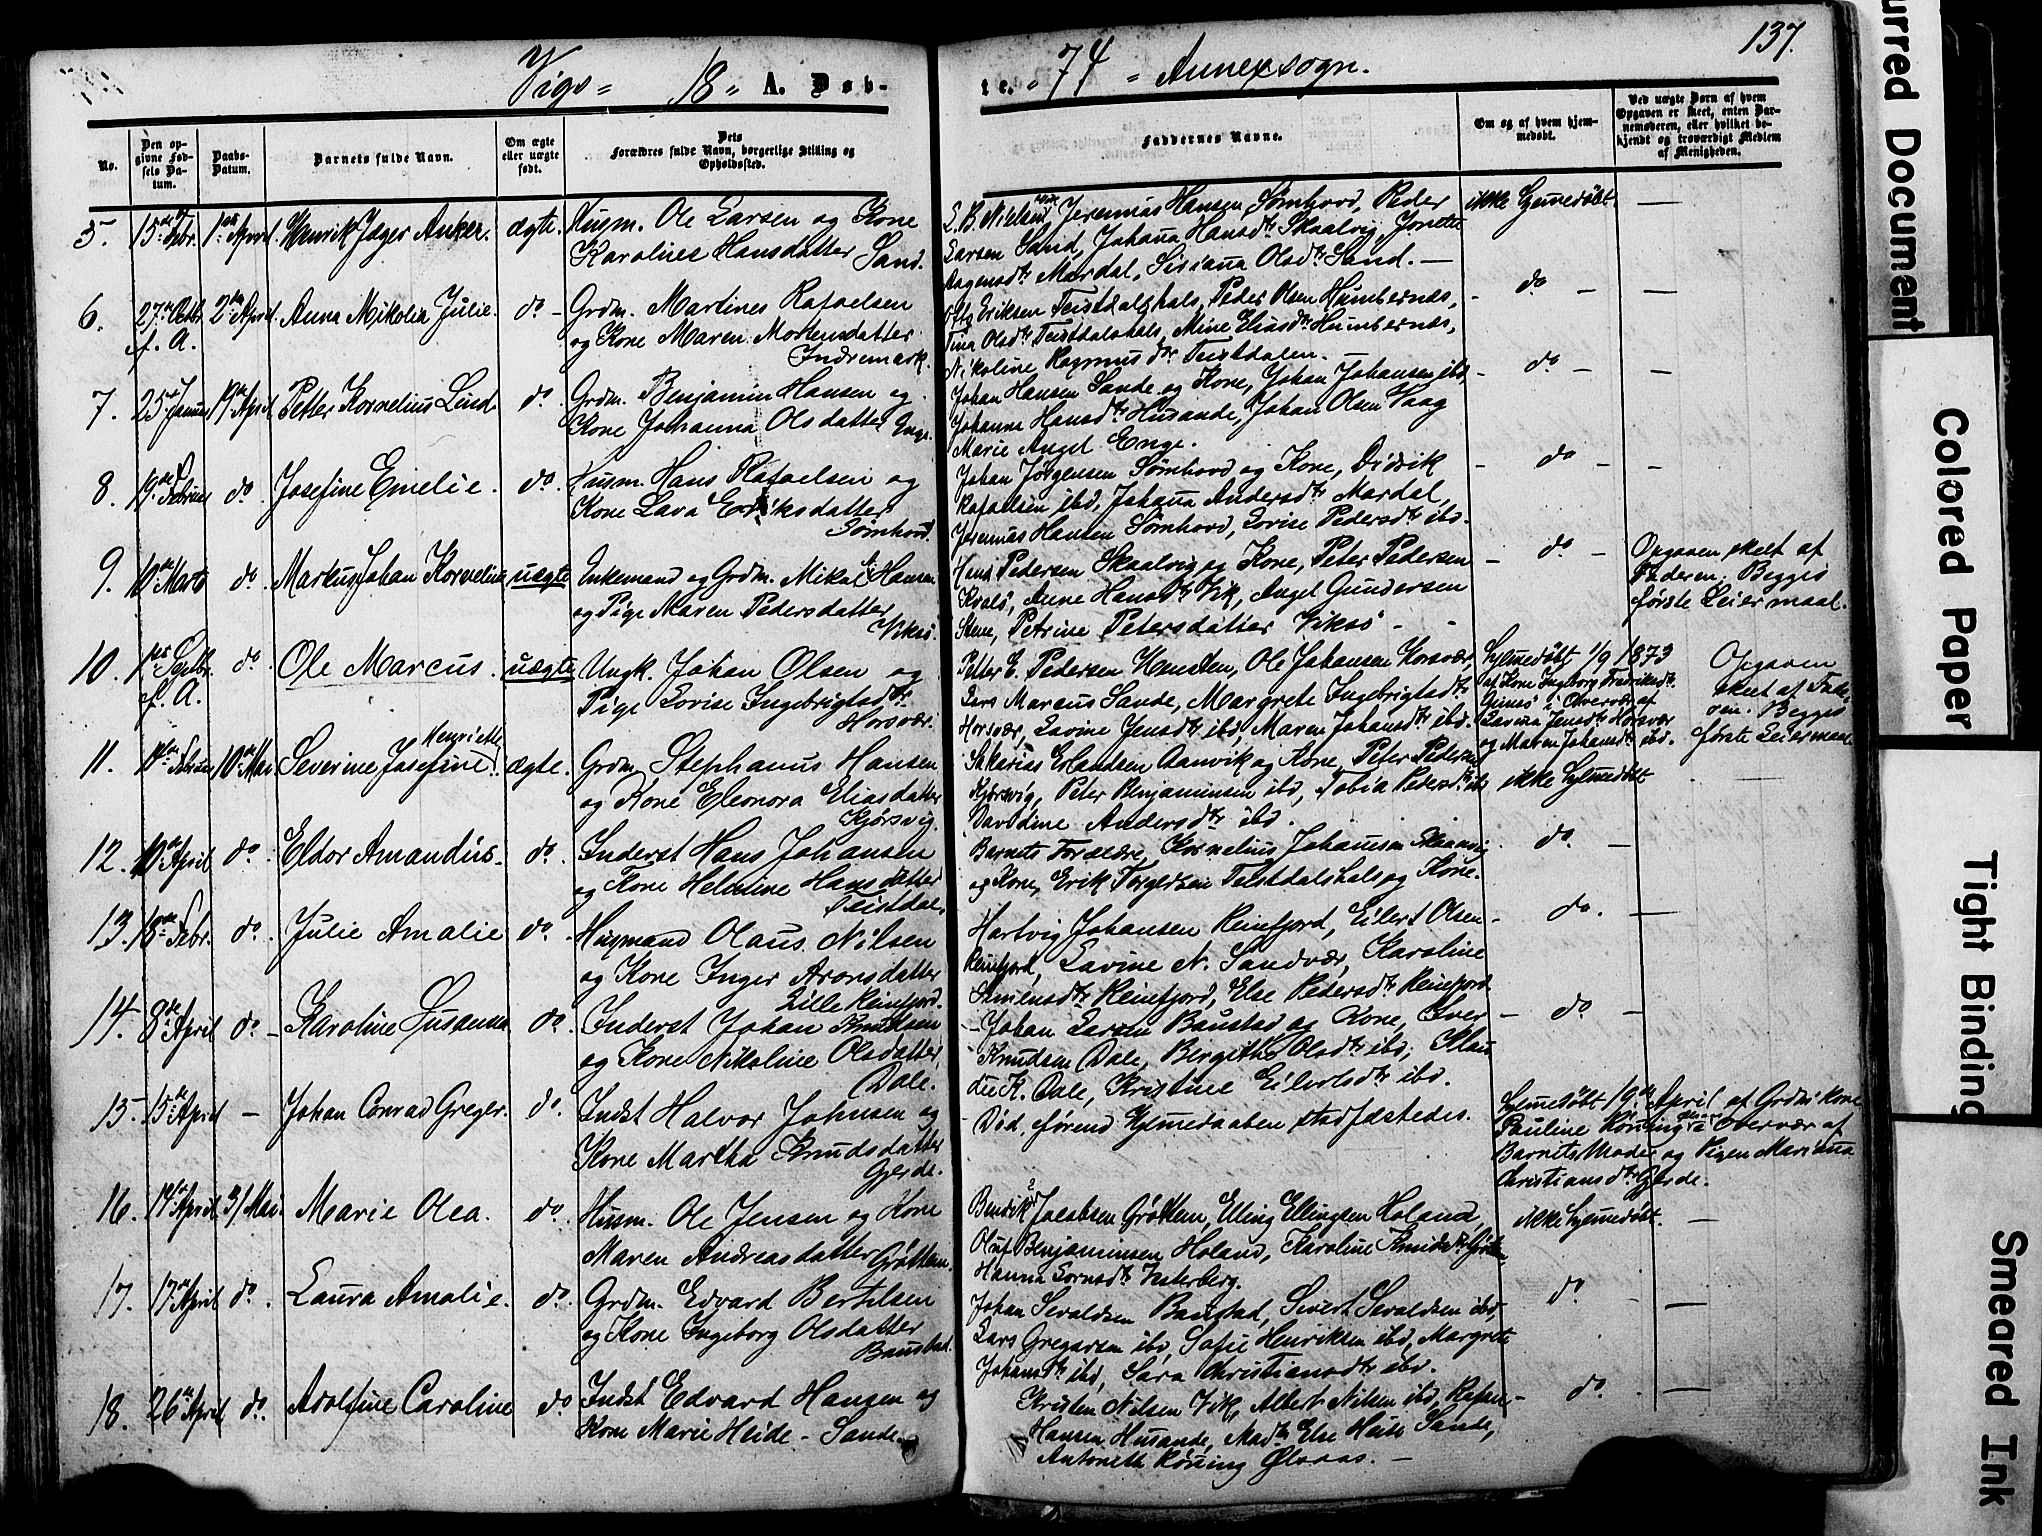 137.
Vigs= 18" A. Døb-
te. "74 = Annexsogn.
No.
Den op-
givne Fød-
sels Da-
tum.
Daabs-
Datum.
Barnets fulde Navn.
Om ægte
eller uægte
født.
Dets
Forældres fulde Navn, borgerlige Stilling og
Opholdssted.
Faddernes Navne.
Om og af hvem hjem-
medøbt.
Ved uægte Børn af hvem
Opgaven er skeet, enten Bar-
nemoderen, eller hvilket be-
kjendt og troværdigt Medlem
af Menigheden.
5. 15de Febr. 1ste April. Henrik Jæger Anker. ægte. Husm. Ole Larsen og Kone
Karolines Hansdatter Sand.
L. B. Nielsen, Jeremias Hansen Sømhovd, Peder
Larsen Sand, Johanna Hansdtr Skaalvig, Jonette
Aagesdtr Mardal, Siriana Olsdtr Sand. —
ikke hjemmedøbt. —
6. 27de Octbr. f. A. 2den April. Anna Mikolea Julie. do - Grdm. Martines Rafaelsen
og Kone Maren Mortensdatter
Indremark.
Eriksen Teistdalshals, Peder Olsen Humbernes,
Tina Olsdtr Teistdalshals, Mine Eliasdtr Humbernes,
Nikoline Rasmusdtr Teistdalen.
- do - —
7. 25de Januar 19de April Petter Kornelius Lind do. Grdm. Benjamin Hansen og
Kone Johanna Olsdatter Enge.
Johan Hansen Sande og Kone, Johan Johansen ibd,
Johanna Hansdtr Husande, Johan Olsen Vaag
Marie Angel Enge.
- do - —
8. 19de Februar do. Josefine Emelie. do. Husm. Hans Rafaelsen og
Kone Lava Eriksdatter
Sømhovd.
Johan Jørgensen Sømhovd og Kone, Didrik
Rafaelsen ibd, Johanna Andersdtr Mardal,
Jeremias Hansen Sømhovd, Lovise Pedersdtr ibd.
- do - —
9. 10de Marts do. Markus Johan Kornelius uægte Enkemand og Grdm. Mikal Hansen
og Pige Maren Pedersdatter
Viksø.
Hans Pedersen Skaalvig og Kone, Peter Pedersen
Kvalø, Anne Hansdtr Vik, Angel Gundersen
Stene, Petrine Petersdatter Viksø - -
- do -
Opgaven skeet af
Faderen; Begges
første Leiermaal.
10. 1ste Septbr. f. A. do. Ole Marcus. uægte Ungk. Johan Olsen og
Pige Lovise Ingebrigtsdtr
Horsvær.
Petter E. Pedersen Hmsten, Ole Johansen Horsvær,
Lars Marcus Sande, Margrete Ingebrigtsdtr
Horsvær, Lavine Jensdtr ibd, Maren Johansdtr ibd.
Hjemmedøbt 1/9 1873
af Kone Ingeborg Fredriksdtr
i Overvær af
Lavina Jensdtr Horsvær
og Maren Johansdtr ibd.
Opgaven
skeet af Fade-
ren. Begges
første Leiermaal
11. Februar 10de Mai Severine Josefine Henriette. ægte. Grdm. Stephanus Hansen
og Kone Eleonora Eliasdatter
Kjørsvig.
Sakarias Erlandsen Aanvik og Kone, Peter Pedersen
Kjørsvig, Peter Benjaminsen ibd, Tobia Pedersdtr ibd
Davidine Andersdtr ibd.
ikke hjemmedøbt
12. 10de April do. Eldor Amandus. do. Inderst Hans Johansen
og Kone Helmine Hansdatter
Teistdal.
Barnets Forældre, Kornelius Johansen
og Kone, Erik Torgersen Teistdalshals og Kone.
do. —
13. 15de Febr. do. Julie Amalie do. Husmand Olaus Nilsen
og Kone Inger Aronsdatter
Lille Reinfjord.
Hartvig Johansen Reinfjord, Eilert Olsen
Reinfjord, Lavine N. Sandvær, Karoline
Simensdtr Reinfjord, Else Pedersdtr Reinfjord
do. —
14. 8de April do - Karoline Susanna do. Inderst Johan Knudsen
og Kone Nikoline Olsdatter
Dale.
- Johan Larsen Baustad og Kone, Iver
Knudsen Dale, Birgitha Olsdtr ibd, Klau
die K. Dale, Kristine Eilertsdtr ibd.
- do —
15. 15de April — Johan Conrad Greger. do. Indst Halvor Johnsen og
Kone Martha Knudsdatter
Gjerde.
- Død, førend Hjemmedaaben stadfæstedes.
Hjemmedøbt 19de April af Grdm. kone
Pauline Rønning i Overvær af
Barnets Moder og Pigen Mariana
Christiansdtr Gjerde.
16. 14de April 31 Mai. Marie Olea. do. Husm. Ole Jensen og Kone
Maren Andreasdatter Grøttem.
Bendik Jacobsen Grøttem, Elling Ellingsen Holand,
Oluf Benjaminsen Holand, Karoline Knudsdtr
Hanna Sørensdtr Vesterberg.
ikke hjemmedøbt. —
17. 17de April do. Laura Amalie. do. Grdm. Edvard Bertilsen
og Kone Ingeborg Olsdatter
Baustad.
Johan Sevaldsen Baustad, Sivert Sevaldsen ibd,
Lars Gregersen ibd, Sofie Henriksen ibd, Margrete
Johansdtr ibd, Sara Christiansdtr ibd.
do. —
18. 26de April do. Adolfine Caroline do Indst Edvard Hansen og
Kone Marie Heide - Sande.
Kristen Nilsen Vik, Albert Nilsen ibd,
Hansen Husande, Mad. Else Heide Sande,
Antonette Rønning —
- do. —
urred Document
Colored Paper
Tight Binding
Smeared Ink